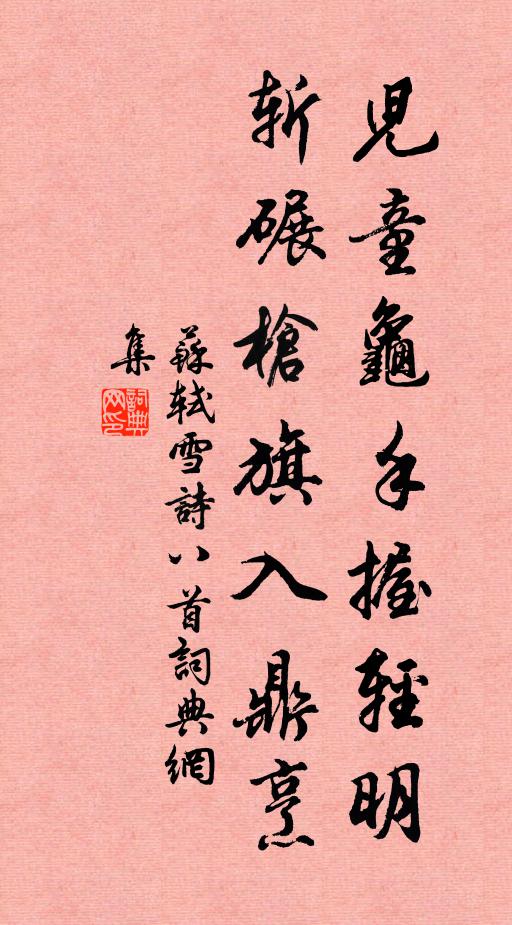 兒童龜手握輕明
斬碾槍旗入鼎烹
蘇軾雪詩八首詞典網
集
詞典
网印